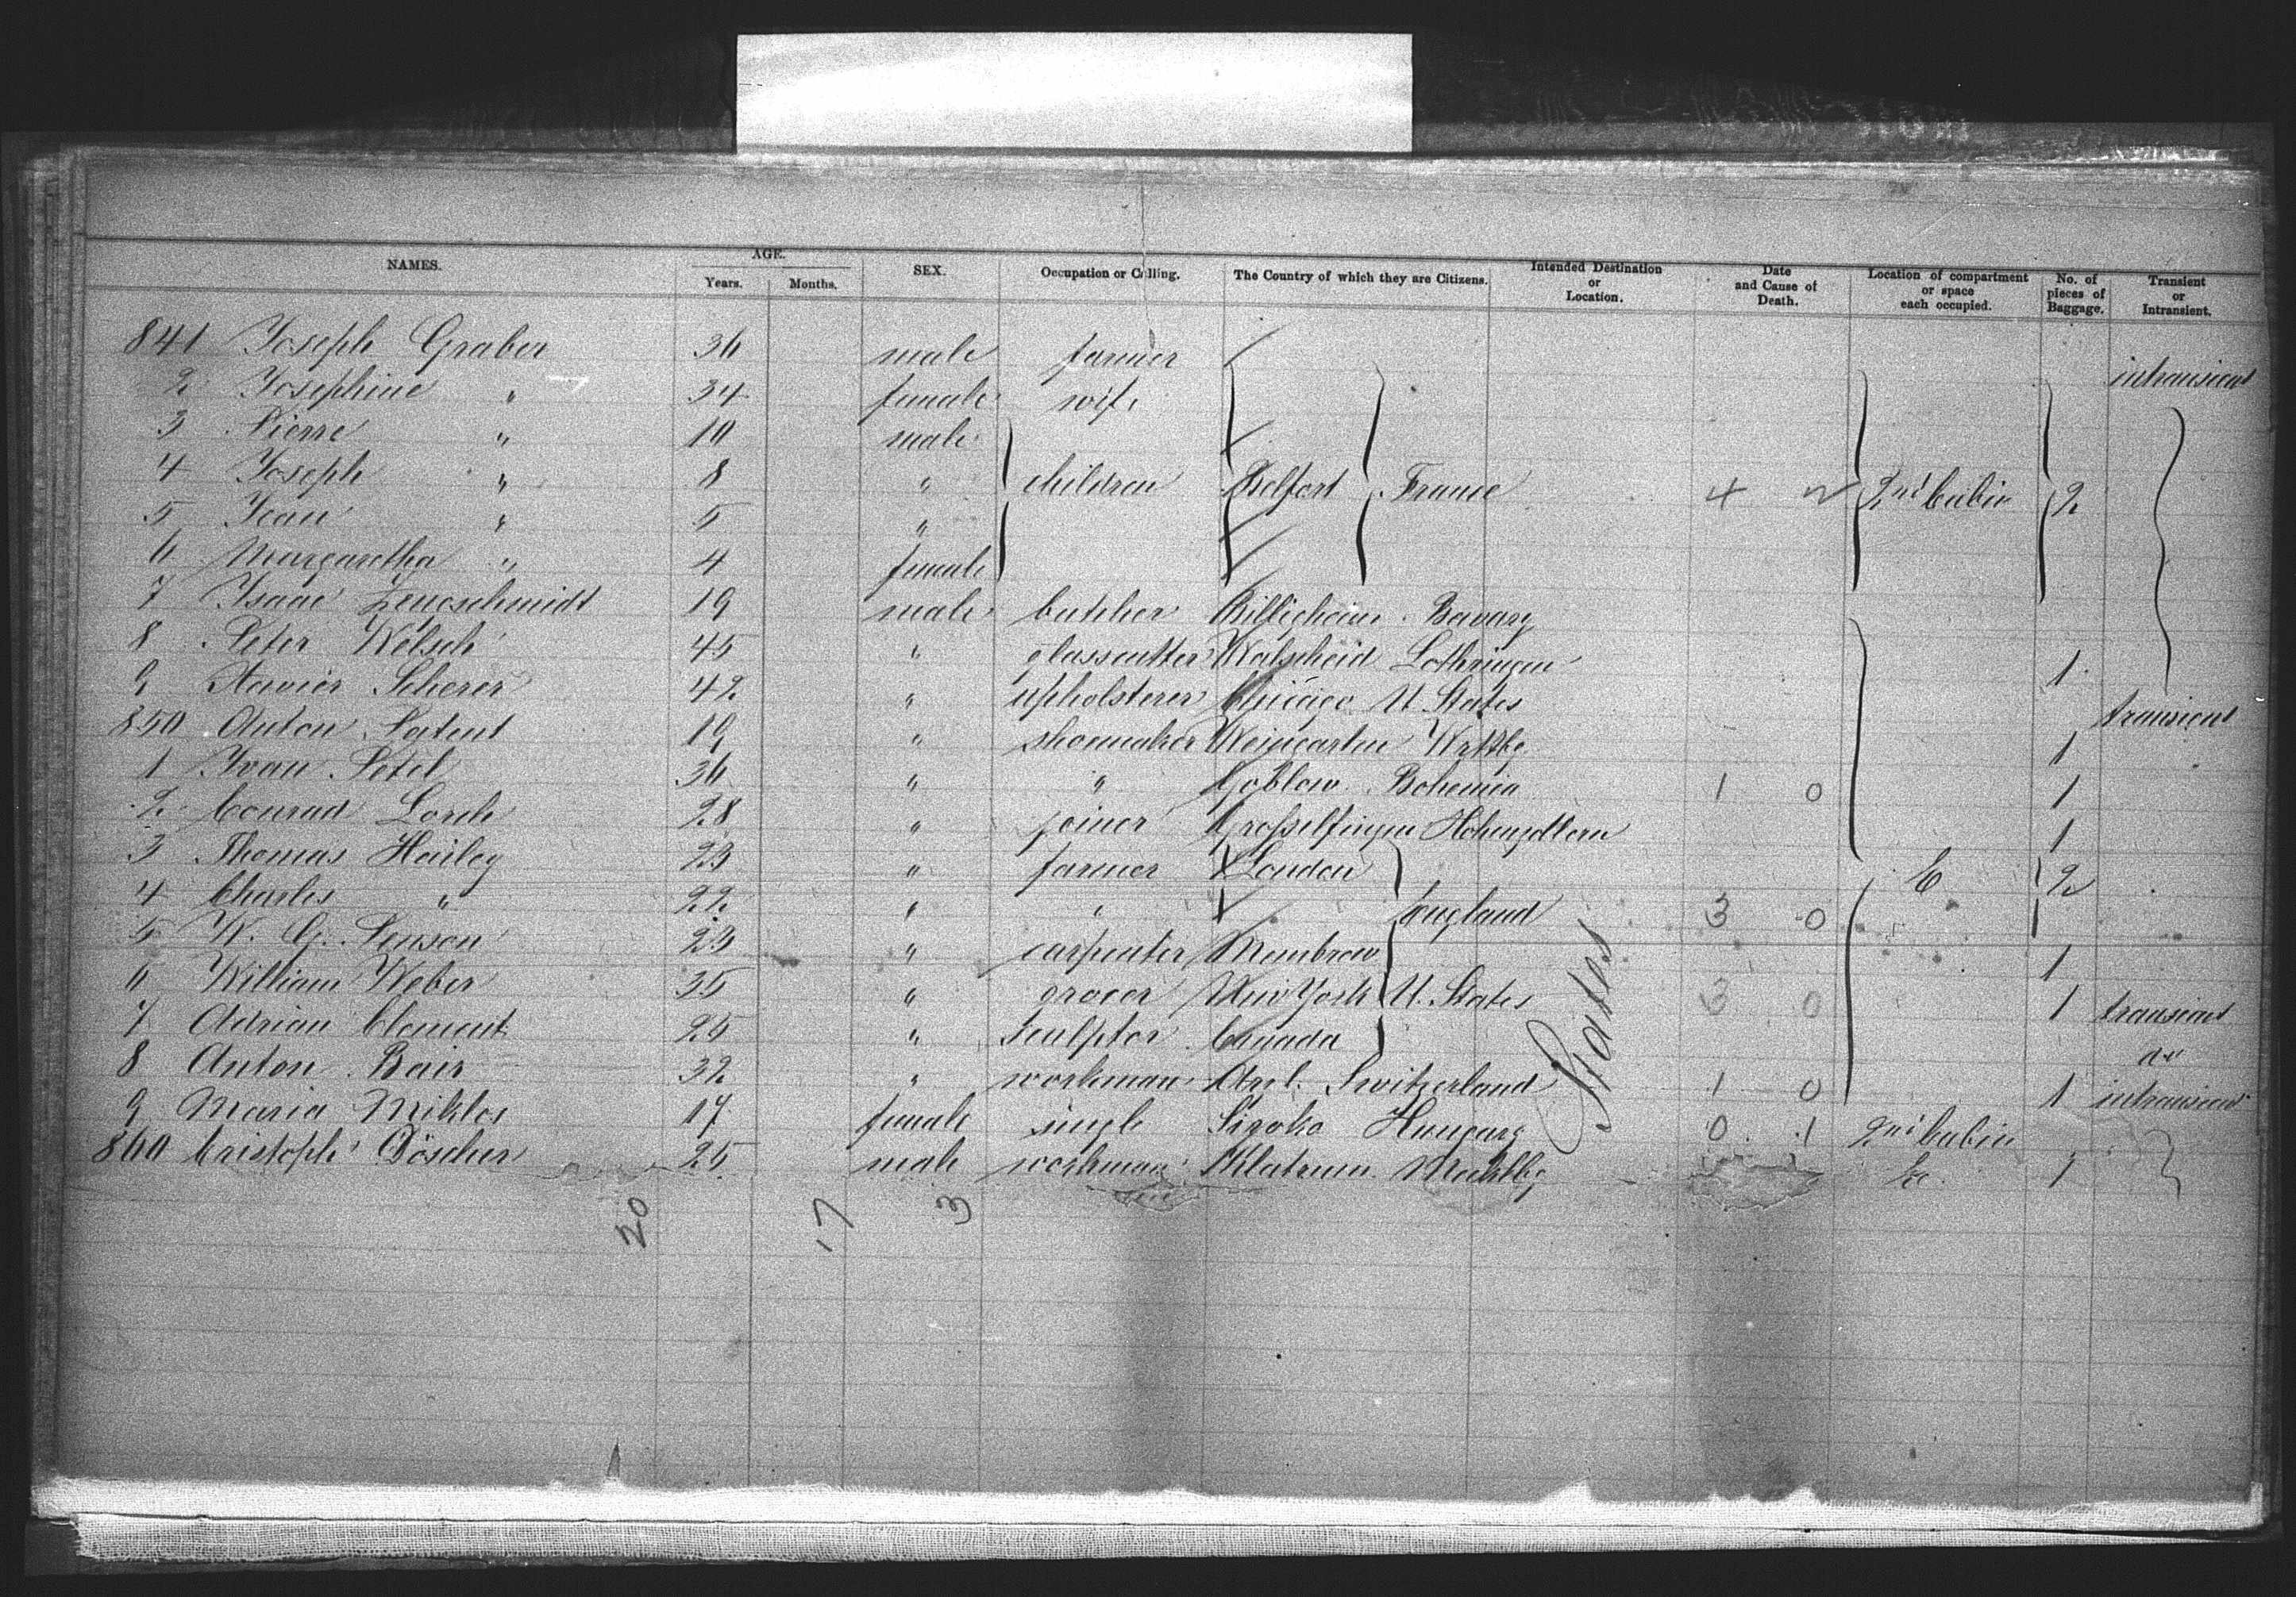 NAMES. AGE. Years. Months. SEX. Occupation or Calling. The Country of which they are Citizens. Intended Destination or Location. Date and Cause of Death. Location of compartment or space each occupied. No. of pieces of Baggage. Transient or Intransient.
841 Joseph Graber 36 male farmer intransient
2 Josephine " 34 female wife
3 Pierre " 10 male
4 Joseph " 8 " children Belfort France 4 2 2nd Cabin 2
5 Jean " 5 "
6 Margaretha " 4 female
7 Isaac Zeugschmidt 19 male butcher Billigheim Bavary
8 Peter Welsch 45 " glasscutter Walscheid Lothringen 1
9 Xavier Scherer 42 " upholsterer Chicago U. States transient
850 Anton Patent 19 " shoemaker Weingarten Wrttbg 1
1 Ivan Petel 36 " " Bohemia 1 0 1
2 Conrad Lorch 28 " joiner Grosselfingen Hohenzollern 1
3 Thomas Hailey 23 " farmer London E 2
4 Charles " 22 " " England 3 0
5 W. G. Penson 23 " carpenter Membrow 1
6 William Weber 35 " grocer New York U. States 3 0 1 transient
7 Adrian Clement 25 " sculptor Canada do
8 Anton Bair 32 " workman Switzerland 1 0 1 intransient
9 Maria Miklos 17 female single Siroko Hungary 0 1 2nd Cabin
860 Cristoph Döscher 25 male workman 1
States
20 17 3